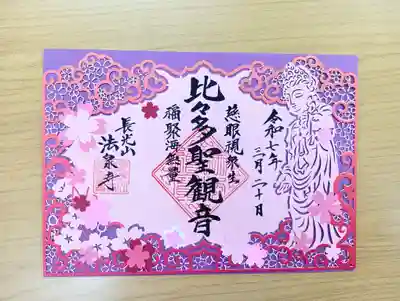 令和七年
三月二十日
慈眼視衆生
比々多聖観音
福聚海無量
長光山
法泉寺